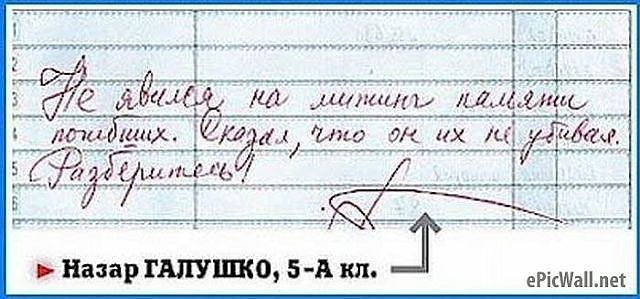 1
2
3
4
5
6
Не явился на митинг памяти
погибших. Сказал, что он их не убивал.
Разберитесь!
Назар ГАЛУШКО, 5-А кл.
ePicWall.net